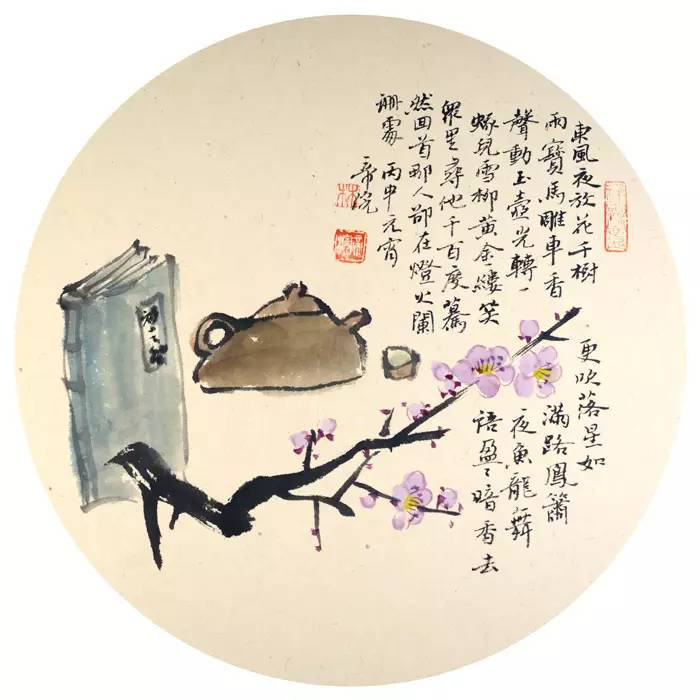 東風夜放花千樹 更吹落星如
雨寶馬雕車香 滿路鳳簫
聲動玉壺光轉一 夜魚龍舞
蛾兒雪柳黃金縷笑 語盈〻暗香去
眾里尋他千百度驀
然回首那人卻在燈火闌
珊處 丙申元宵